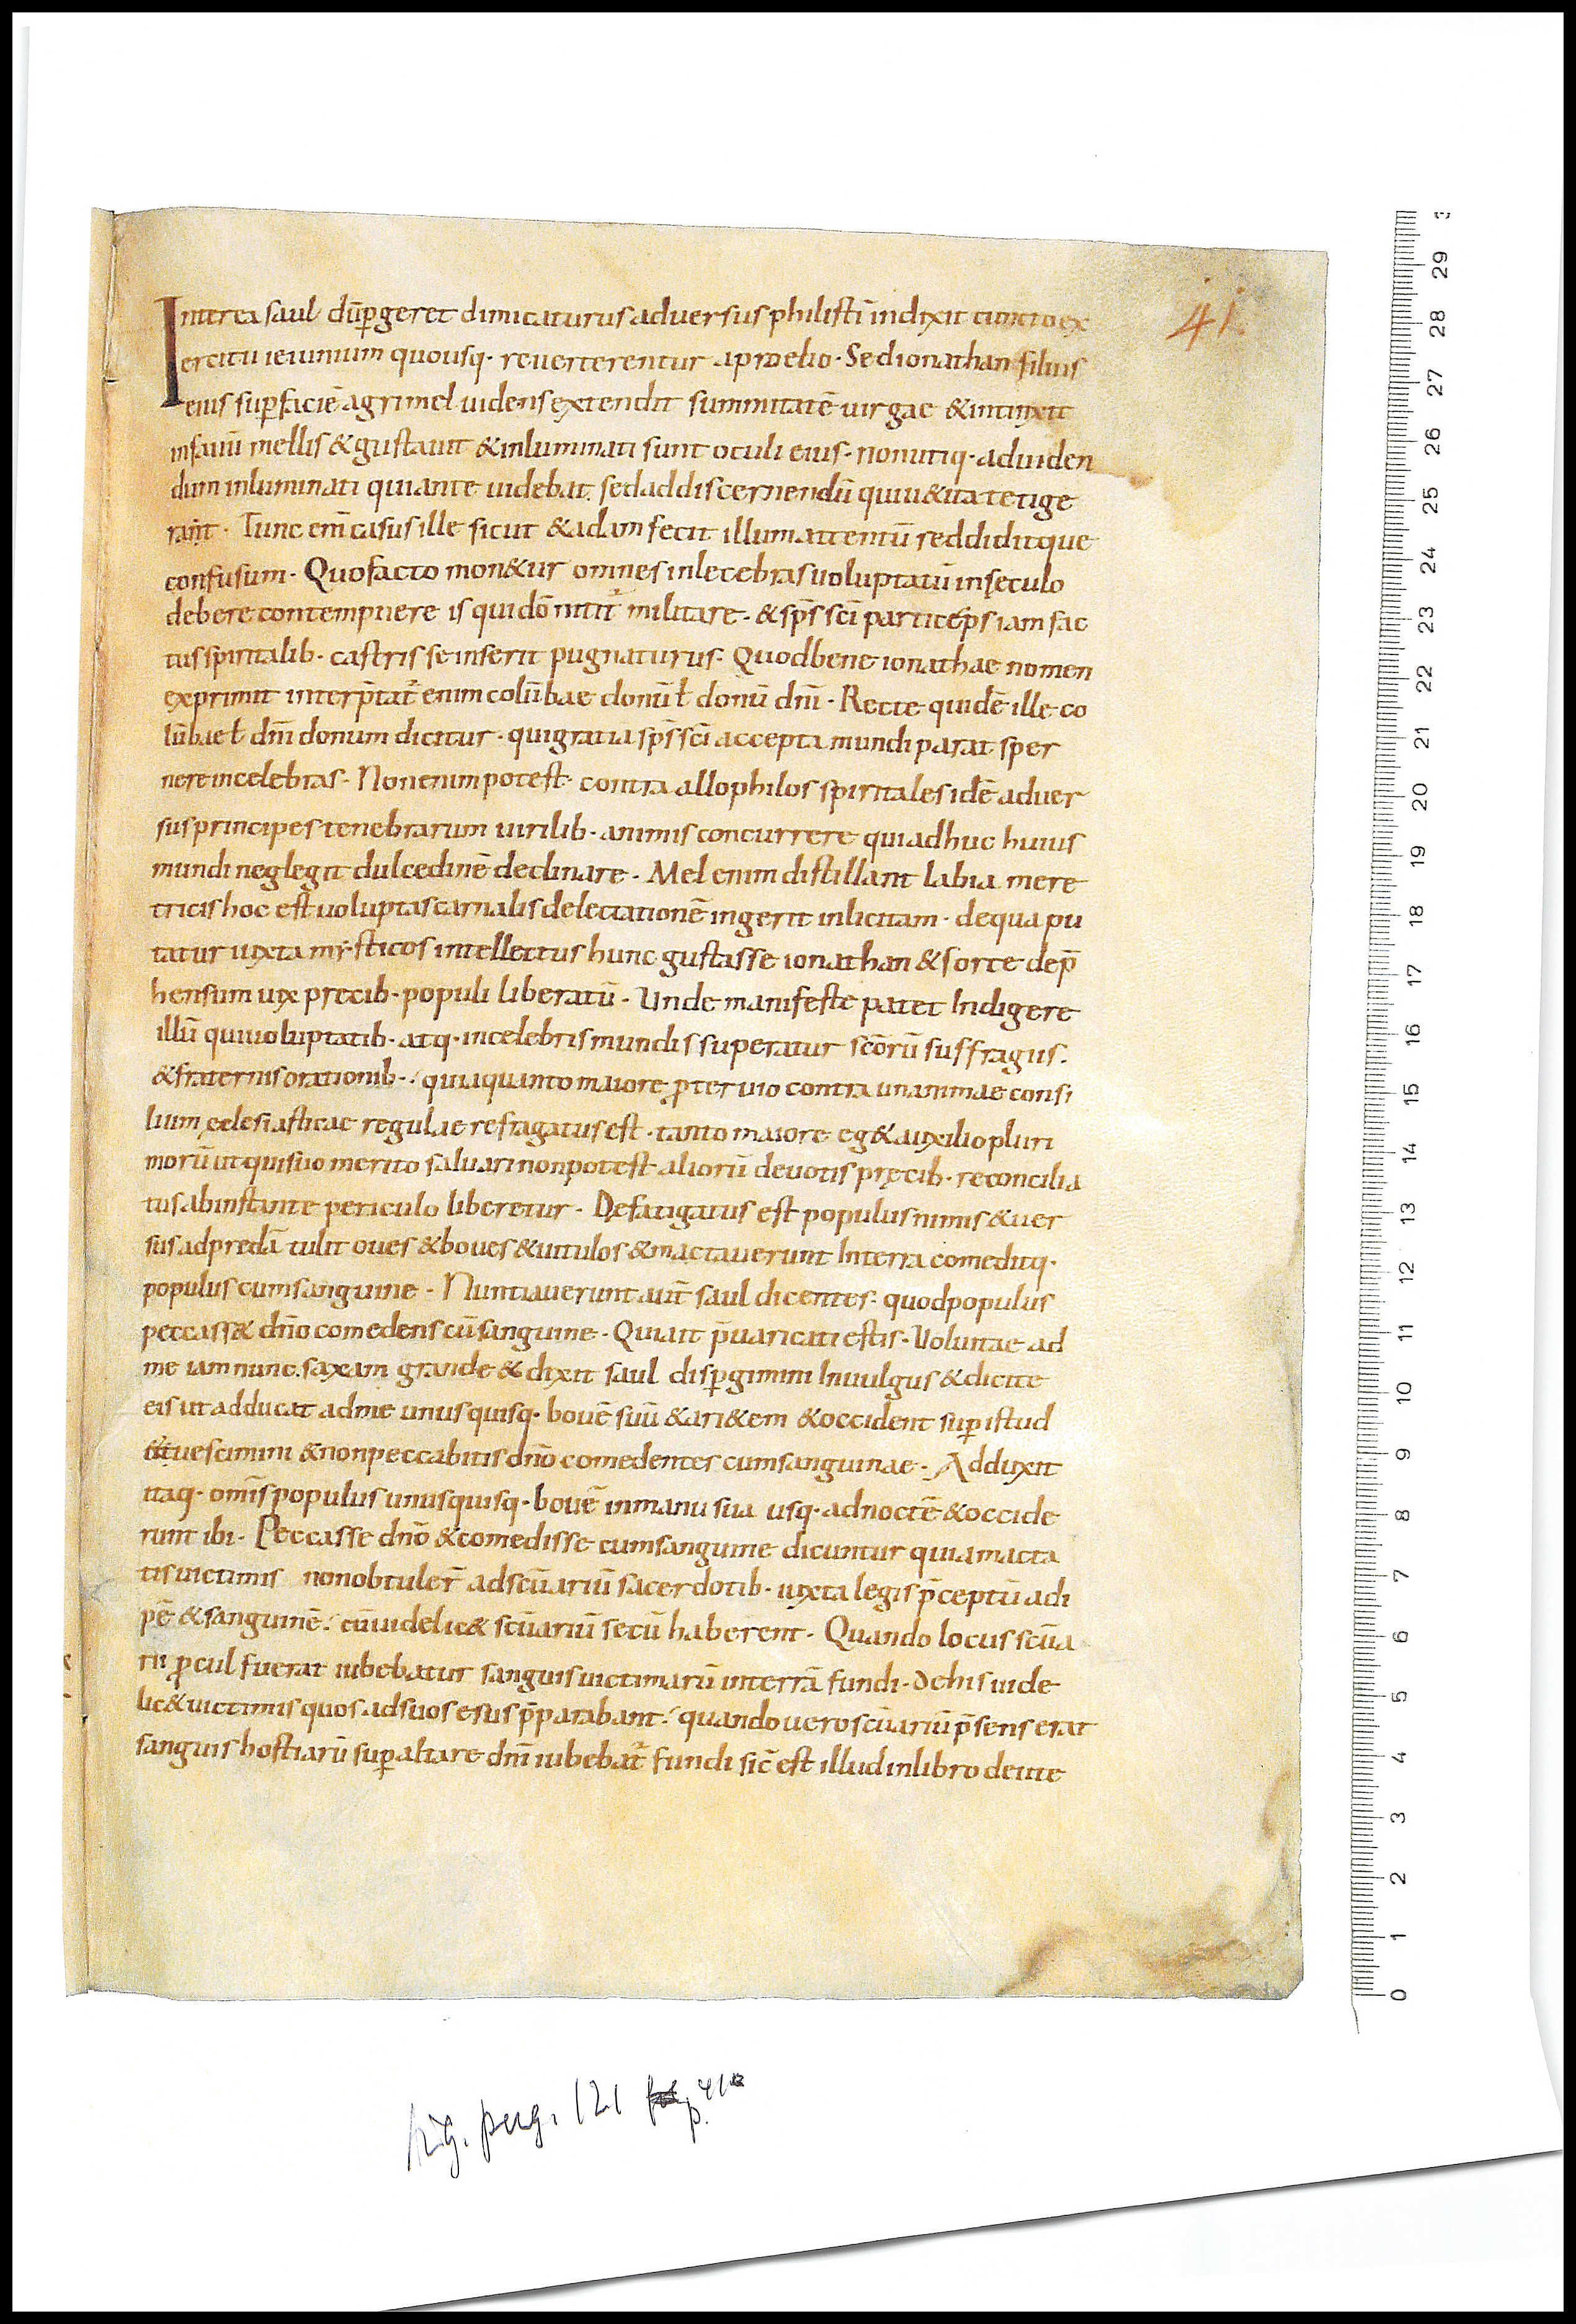 41.
Interea saul dūꝑgeret dimicaturus aduersus philistī indixit cuncto ex
ercitu ieiunium quousq· reuerterentur a proelio· Sed ionathan filius
eius suꝑ faciē agri mel uidens extendit summitatē uirgae & intinxit
in fauū mellis & gustauit & inluminati sunt oculi eius· non utiq· ad uiden
dum inluminati qui ante uidebat. sed ad discernendū qui u&ita tetige
rant· Tunc em̄ casus ille sicut & adam fecit illum attentū reddiditque
confusum· Quo facto mon&ur omnes inlecebras uoluptatū in sęculo
debere contempnere is qui dō nitit᷑ militare· & sp̄s sc̄i particeps iam fac
tus spiritalib· castris se inserit pugnaturus· Quod bene ionathae nomen
exprimit interp̄tat᷑ enim colūbae donū ƚ donū dn̄i· Recte quidē ille co
lūbae ƚ dn̄i donum dicitur· qui gratia sp̄s sc̄i accepta mundi parat sper
nere incelebras· Non enim potest· contra allophilos spiritales idē aduer
sus principes tenebrarum uirilib· animis concurrere qui adhuc huius
mundi neglegit dulcedinē declinare· Mel enim distillant labia mere
tricis hoc est uoluptas carnalis delectationē ingerit inlicitam· de qua pu
tatur iuxta mẏsticos intellectus hunc gustasse ionathan & sorte dep̄
hensum uix precib· populi liberatū· Unde manifeste patet Indigere
illū qui uoluptatib· atq· incelebris mundis superatur sc̄orū suffragiis.
& fraternis orationib·: quia quanto maiore ꝓteruio contra unanimae consi
lium ęclesiasticae regulae refragatus est· tanto maiore eg& auxilio pluri
morū ut qui suo merito saluari non potest aliorū deuotis pręcib· reconcilia
tus ab instante periculo liberetur· Defatigatus est populus nimis & uer
sus ad predā tulit oues & boues & uitulos & mactauerunt In terra comeditq·
populus cum sanguine· Nuntiauerunt aut̄ saul dicentes· quod populus
peccass& dn̄o comedens cū sanguine· Qui ait p̄uaricati estis· Uoluitae ad
me iam nunc. saxam grande & dixit saul disꝑgimini In uulgus & dicite
eis ut adducat ad me unus quisq· bouē suū & ari&em & occident suꝑ istud
& uescimini & non peccabitis dn̄o comedentes cum sanguinae· Adduxit
itaq· om̄is populus unusquisq· bouē in manu sua usq· ad noctē & occide
runt ibi· Peccasse dn̄o & comedisse cum sanguine dicuntur quia macta
tis uictimis non obtuler̄ ad sc̄uariū sacerdotib· iuxta legis p̄ceptū adi
pē & sanguinē: cū uidelic& sc̄uariū secū haberent· Quando locus sc̄ua
rii ꝓcul fuerat iubebatur sanguis uictimarū in terrā fundi· de his uide
lic& uictimis quos ad suos esus p̄parabant: quando uero sc̄uariū p̄sens erat
sanguis hostiarū suꝑ altare dn̄i iubebat᷑ fundi sic̄ est illud in libro deute
perg. 121 p. 41
0 1 2 3 4 5 6 7 8 9 10 11 12 13 14 15 16 17 18 19 20 21 22 23 24 25 26 27 28 29